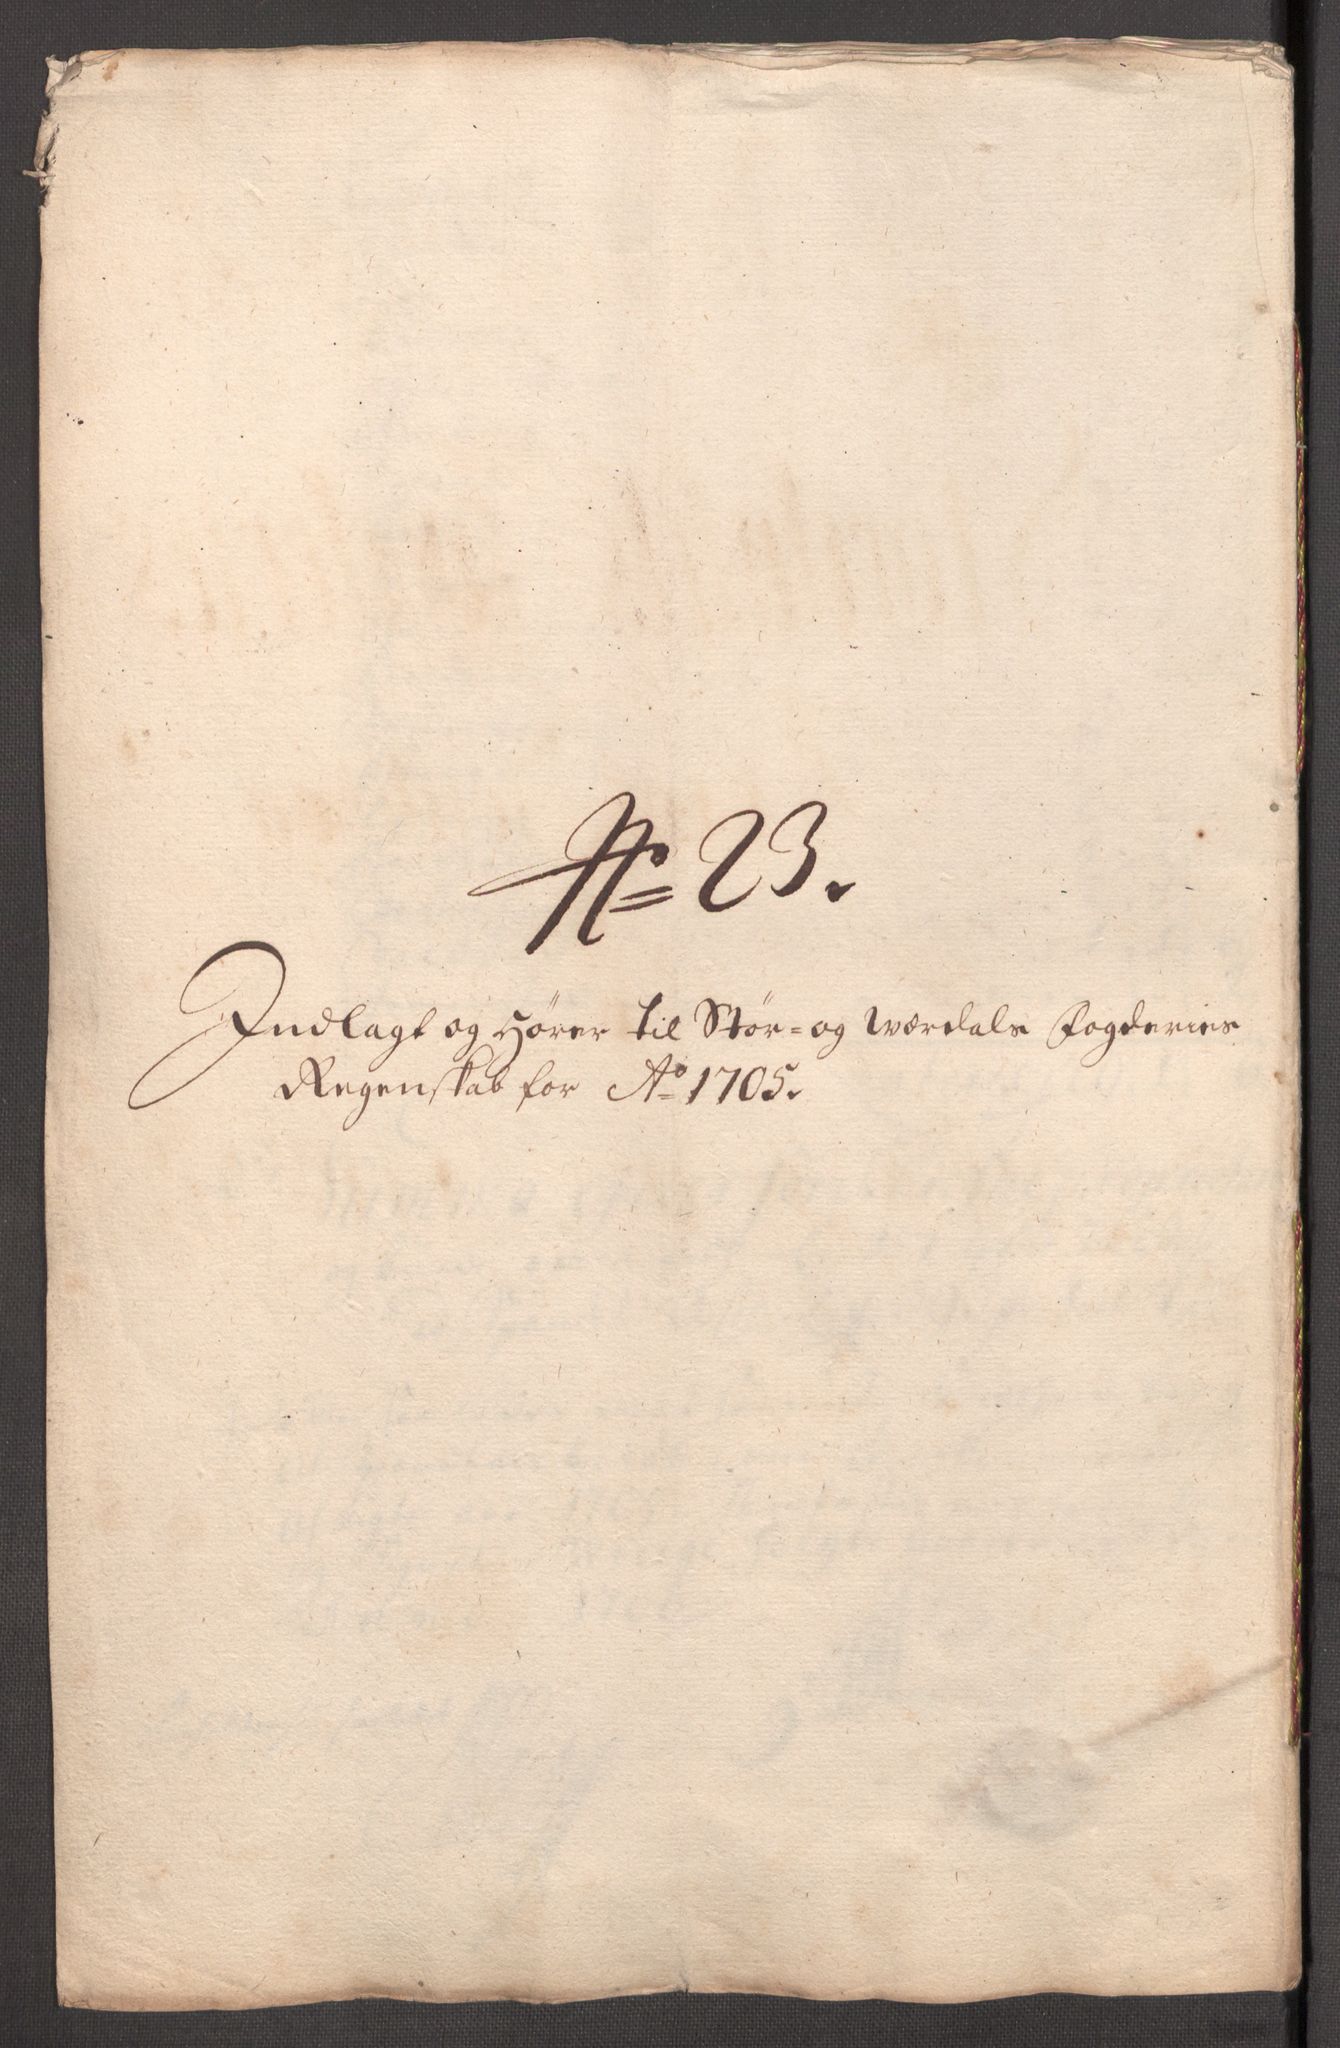 No 23.
Indlagt og Hører til Stør- og Wærdals Fogderies
Regenskab for Ao 1705.